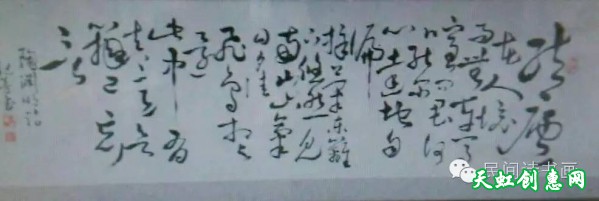 结庐
在人境
而无车马
喧问君何
能尔
心远地自
偏
採菊东篱
下悠然见
南山山气
日夕佳
飞鸟相
与还
此中有
真意欲
辨已忘
言
陶渊明诗
民间诗书画
天虹创惠网